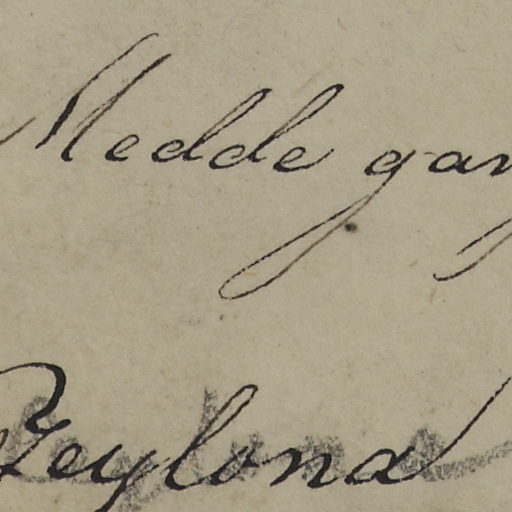 Medde gan
Zeylona